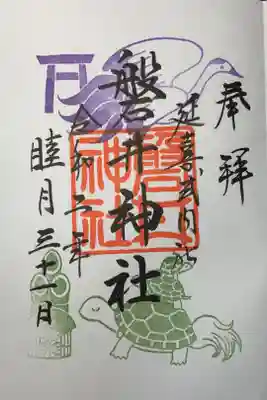 奉拝
延喜式内社
磐井神社
磐井
神社
令和二年
睦月三十一日